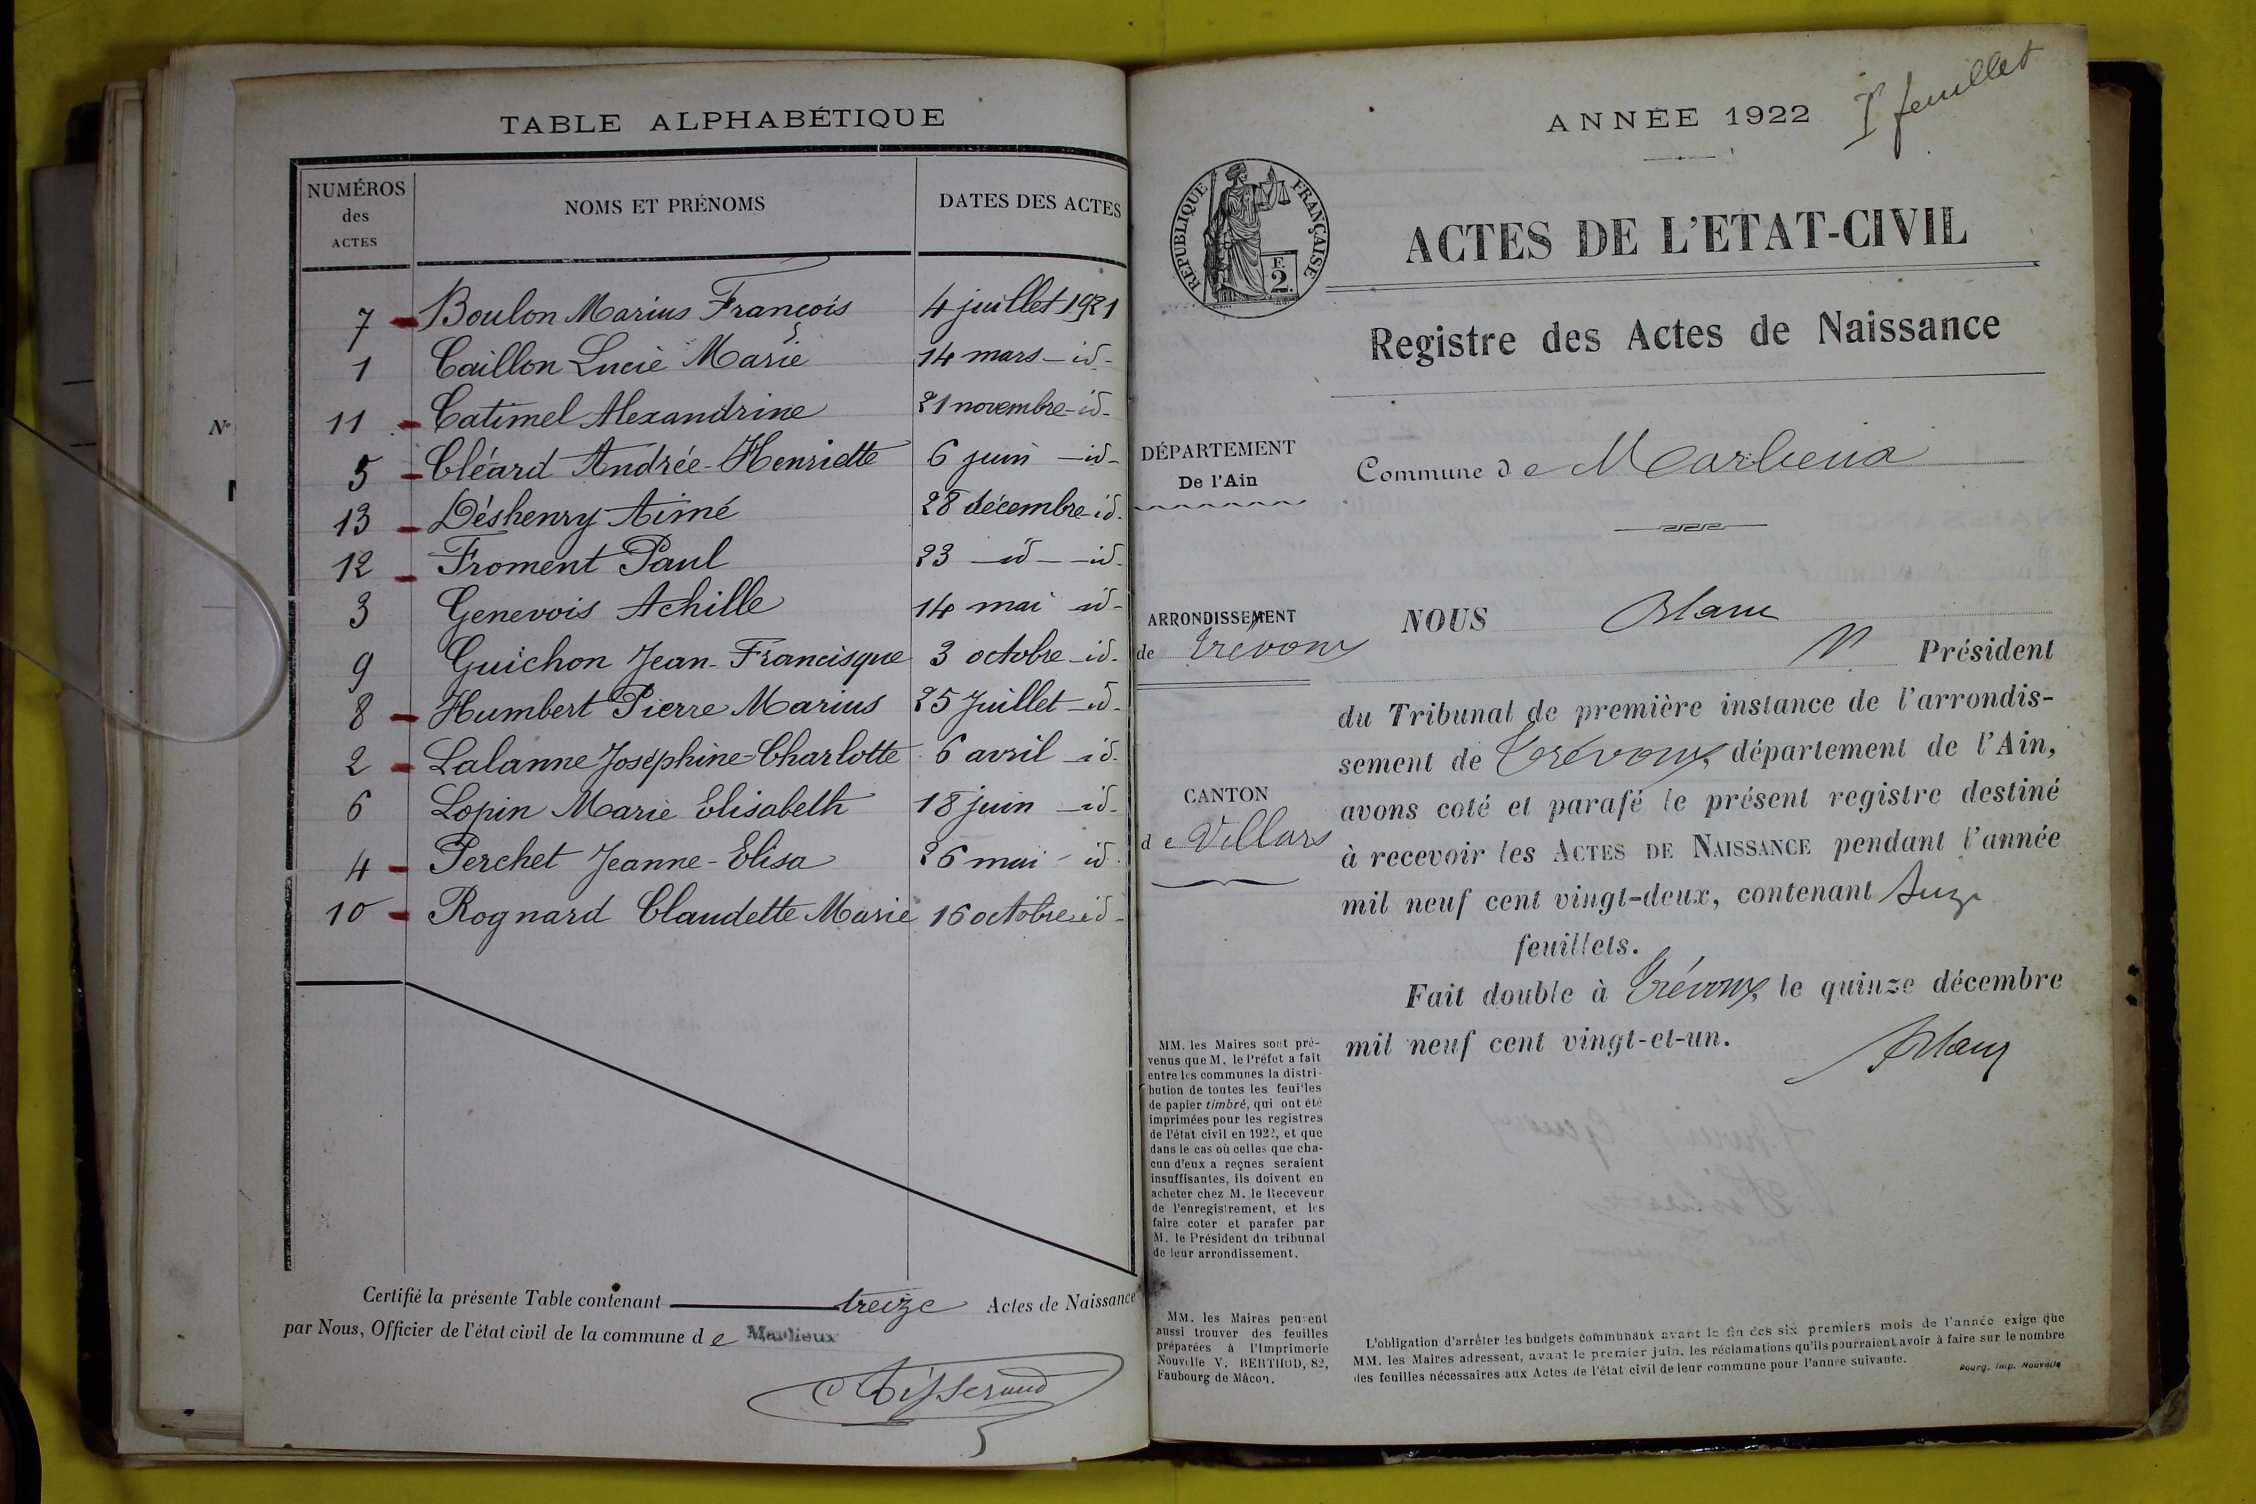 TABLE ALPHABÉTIQUE
NUMÉROS des ACTES
NOMS ET PRÉNOMS
DATES DES ACTES
7 Boulon Marius François 4 juillet 1921
1 Caillon Lucie Marie 14 mars - id -
11 Catimel Alexandrine 21 novembre - id -
5 Cléard Andrée-Henriette 6 juin - id -
13 Déshenry Aimé 28 décembre - id.
12 Froment Paul 23 - id - - id.
3 Genevois Achille 14 mai - id -
9 Guichon Jean-Francisque 3 octobre - id.
8 Humbert Pierre Marius 25 Juillet - id -
2 Lalanne Joséphine-Charlotte 6 avril - id.
6 Lopin Marie Elisabeth 18 juin - id -
4 Perchet Jeanne-Elisa 26 mai - id.
10 Rognard Claudette Marie 16 octobre id -
Certifié la présente Table contenant treize Actes de Naissance
par Nous, Officier de l'état civil de la commune de Marlieux
Tisserand
N°
feuillet
ANNÉE 1922
RÉPUBLIQUE FRANÇAISE
F.
2.
ACTES DE L'ETAT-CIVIL
Registre des Actes de Naissance
DÉPARTEMENT
De l'Ain
Commune de
ARRONDISSEMENT
de Trévoux
CANTON
de Villars
NOUS Blanc
Président
du Tribunal de première instance de l'arrondis-
sement de Trévoux, département de l'Ain,
avons coté et parafé le présent registre destiné
à recevoir les ACTES DE NAISSANCE pendant l'année
mil neuf cent vingt-deux, contenant
feuillets.
Fait double à Trévoux, le quinze décembre
mil neuf cent vingt-et-un.
Blanc
MM. les Maires sont pré-
venus que M. le Préfet a fait
entre les communes la distri-
bution de toutes les feuilles
de papier timbré, qui ont été
imprimées pour les registres
de l'état civil en 1922, et que
dans le cas où celles que cha-
cun d'eux a reçues seraient
insuffisantes, ils doivent en
acheter chez M. le Receveur
de l'enregistrement, et les
faire coter et parafer par
M. le Président du tribunal
de leur arrondissement.
MM. les Maires peuvent
aussi trouver des feuilles
préparées à l'Imprimerie
Nouvelle V. BERTHOD, 82,
Faubourg de Mâcon.
L'obligation d'arrêter les budgets communaux avant la fin des six premiers mois de l'année exige que
MM. les Maires adressent, avant le premier juin, les réclamations qu'ils pourraient avoir à faire sur le nombre
des feuilles nécessaires aux Actes de l'état civil de leur commune pour l'année suivante.
Bourg. Imp. Nouvelle